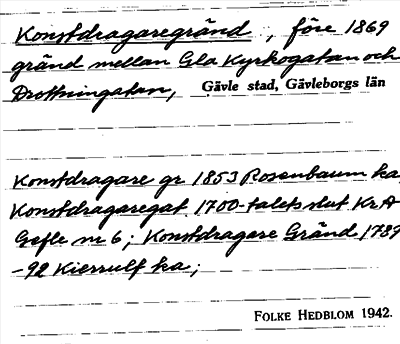 Konstdragaregränd, före 1869
gränd mellan Gla Kyrkogatan och
Drottningatan, Gävle stad, Gävleborgs län
Konstdragare gr 1853 Rosenbaum ka,
Konstdragaregat 1700-talets slut KrA
Gefle nr 6; Konstdragare Gränd 1789
-92 Kierrulf ka;
FOLKE HEDBLOM 1942.